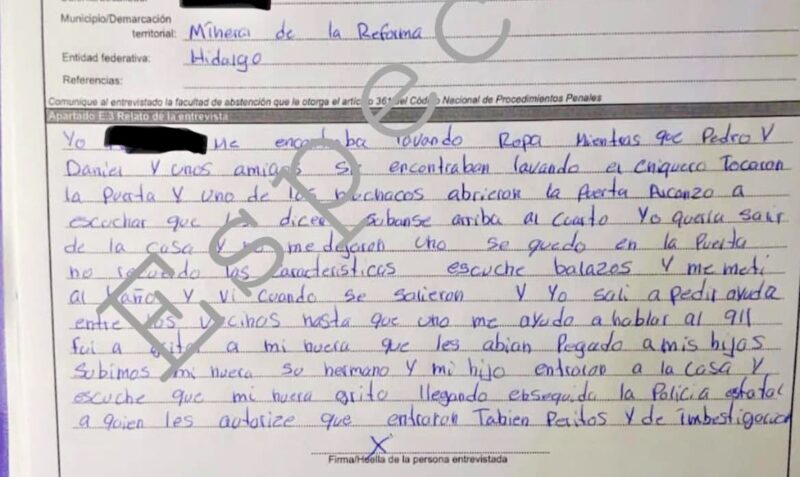 Municipio/Demarcación
territorial: Mineral de la Reforma
Entidad federativa: Hidalgo
Referencias:
Comunique al entrevistado la facultad de abstención que le otorga el artículo 361 del Código Nacional de Procedimientos Penales
Apartado E.3 Relato de la entrevista
Yo Me encontraba lavando Ropa Mientras que Pedro Y
Daniel Y unos amigos se encontraban lavando el chiquero Tocaron
la Puerta Y uno de los muchacos abrieron la Puerta Alcanzo a
escuchar que les dicen subanse arriba al cuarto Yo queria salir
de la casa Y no me dejaron uno se quedo en la Puerta
no recuerdo las caracteristicas escuche balazos Y me meti
al baño Y vi cuando se salieron Y Yo sali a pedir ayuda
entre los vecinos hasta que uno me ayudo a hablar al 911
fui a gritar a mi nuera que les abian Pegado a mis hijos
Subimos mi nuera su hermano Y mi hijo entraron a la casa Y
escuche que mi nuera grito llegando ensequida la Policia estatal
a quien les autorize que entraran Tabien Peritos Y de imbestigacion
X
Firma/Huella de la persona entrevistada
Espec